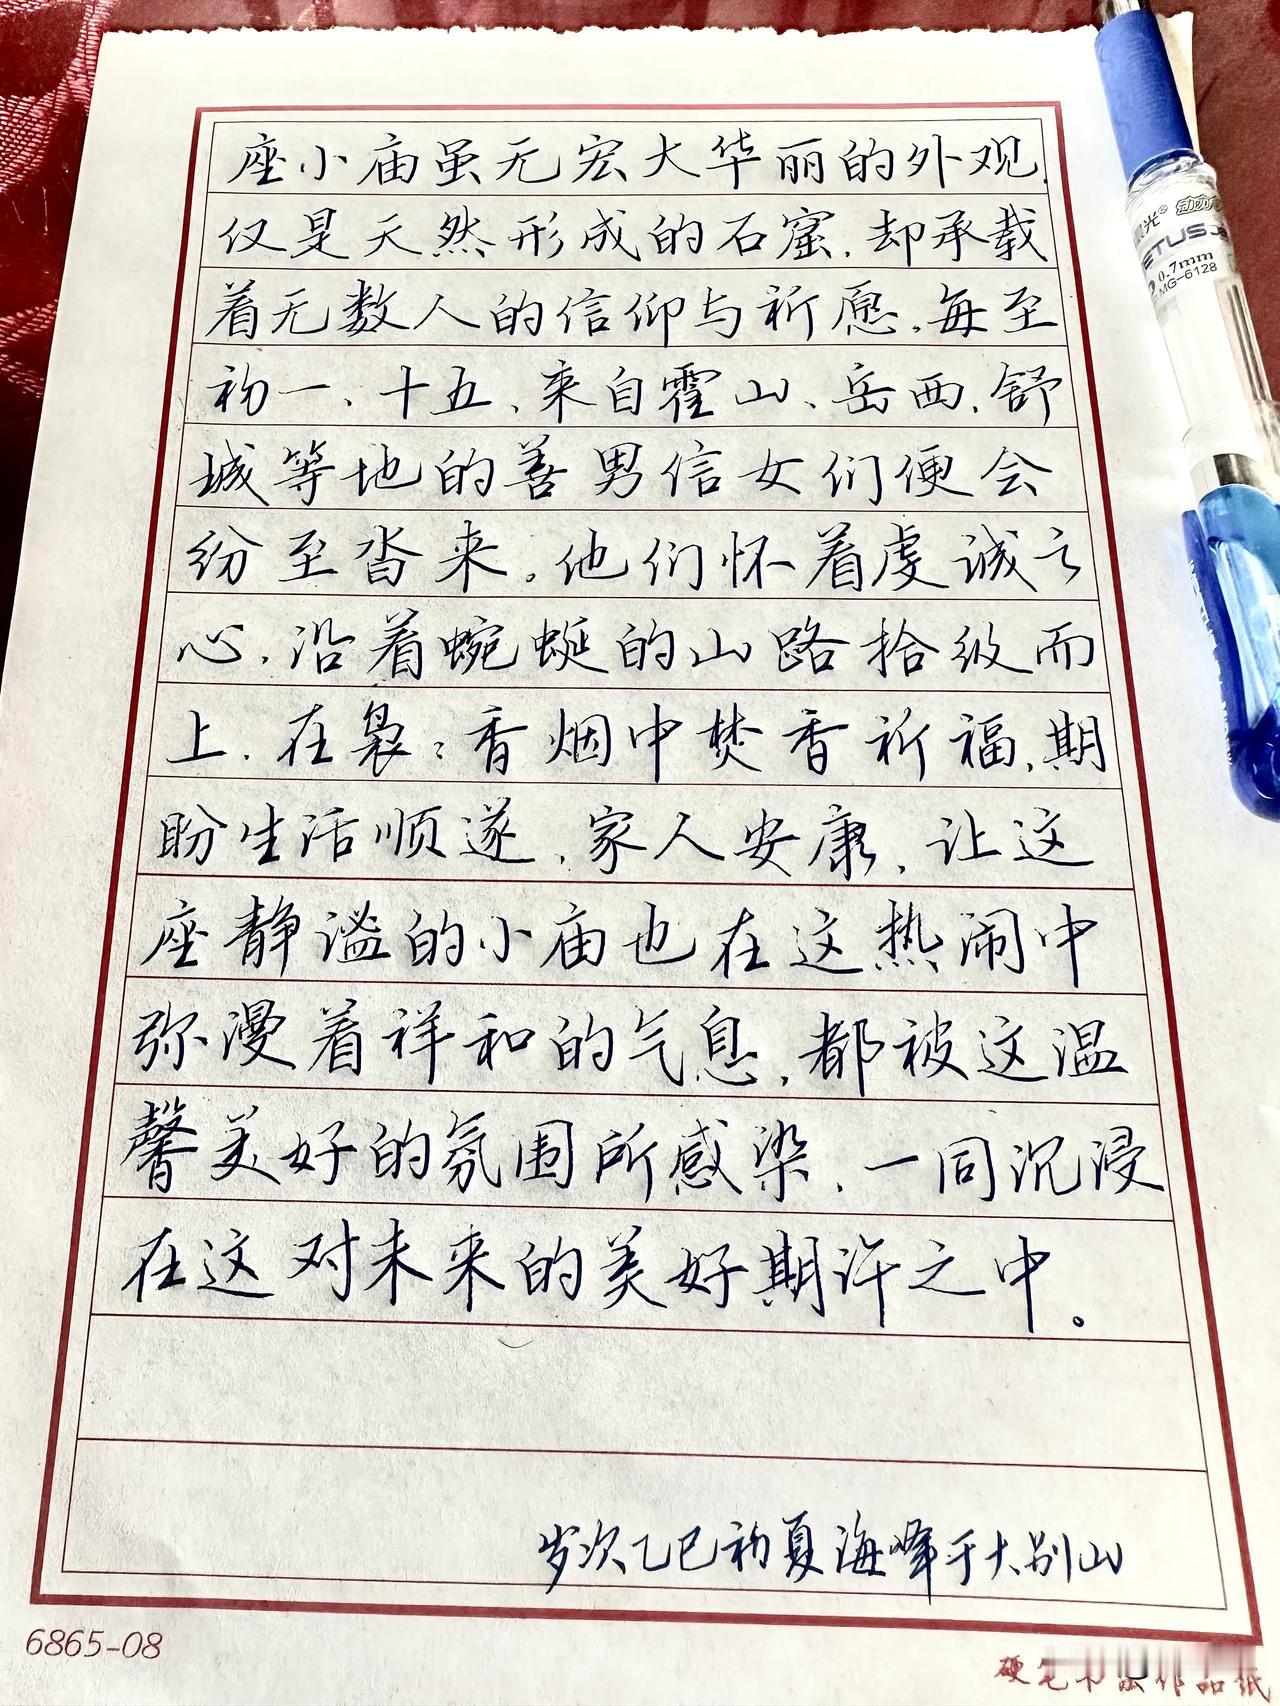 座小庙虽无宏大华丽的外观,
仅是天然形成的石窟,却承载
着无数人的信仰与祈愿,每至
初一、十五,来自霍山、岳西,舒
城等地的善男信女们便会
纷至沓来。他们怀着虔诚之
心,沿着蜿蜒的山路拾级而
上,在袅々香烟中焚香祈福,期
盼生活顺遂,家人安康,让这
座静谧的小庙也在这热闹中
弥漫着祥和的气息,都被这温
馨美好的氛围所感染,一同沉浸
在这对未来的美好期许之中。
岁次乙巳初夏海峰于大别山
6865-08
硬笔书法作品纸
0.7mm
MG-6128